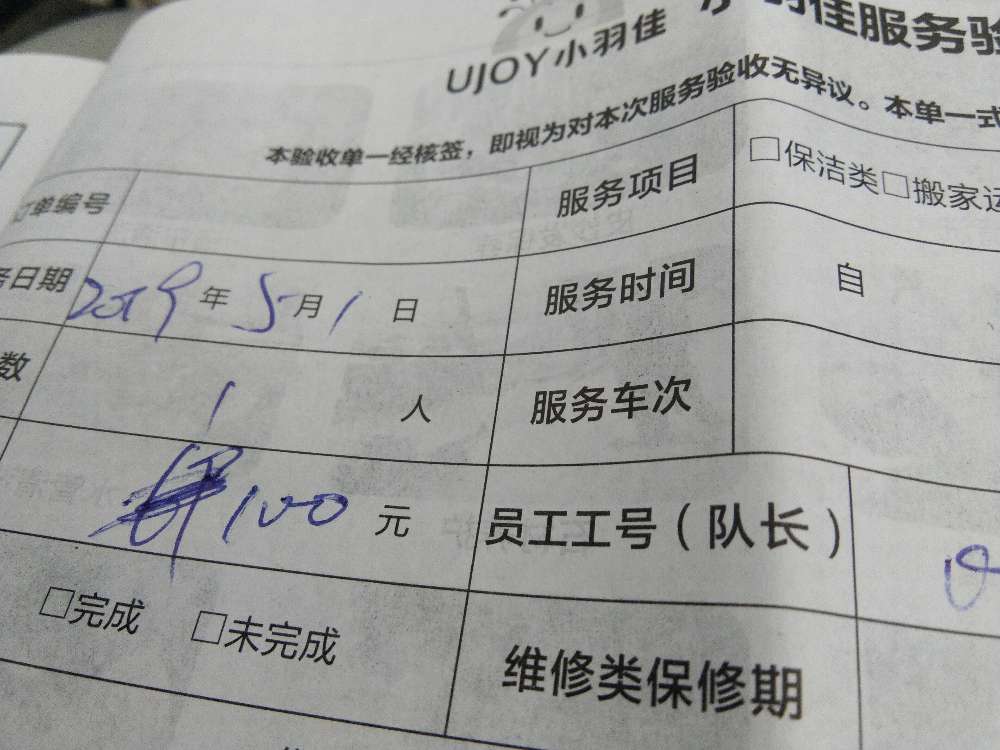 UJOY小羽佳
羽佳服务验
本验收单一经核签，即视为对本次服务验收无异议。本单一式
订单编号 服务项目 □保洁类□搬家运
务日期 2019年5月1日 服务时间 自
数 1 人 服务车次
100元 员工工号（队长）
□完成 □未完成 维修类保修期